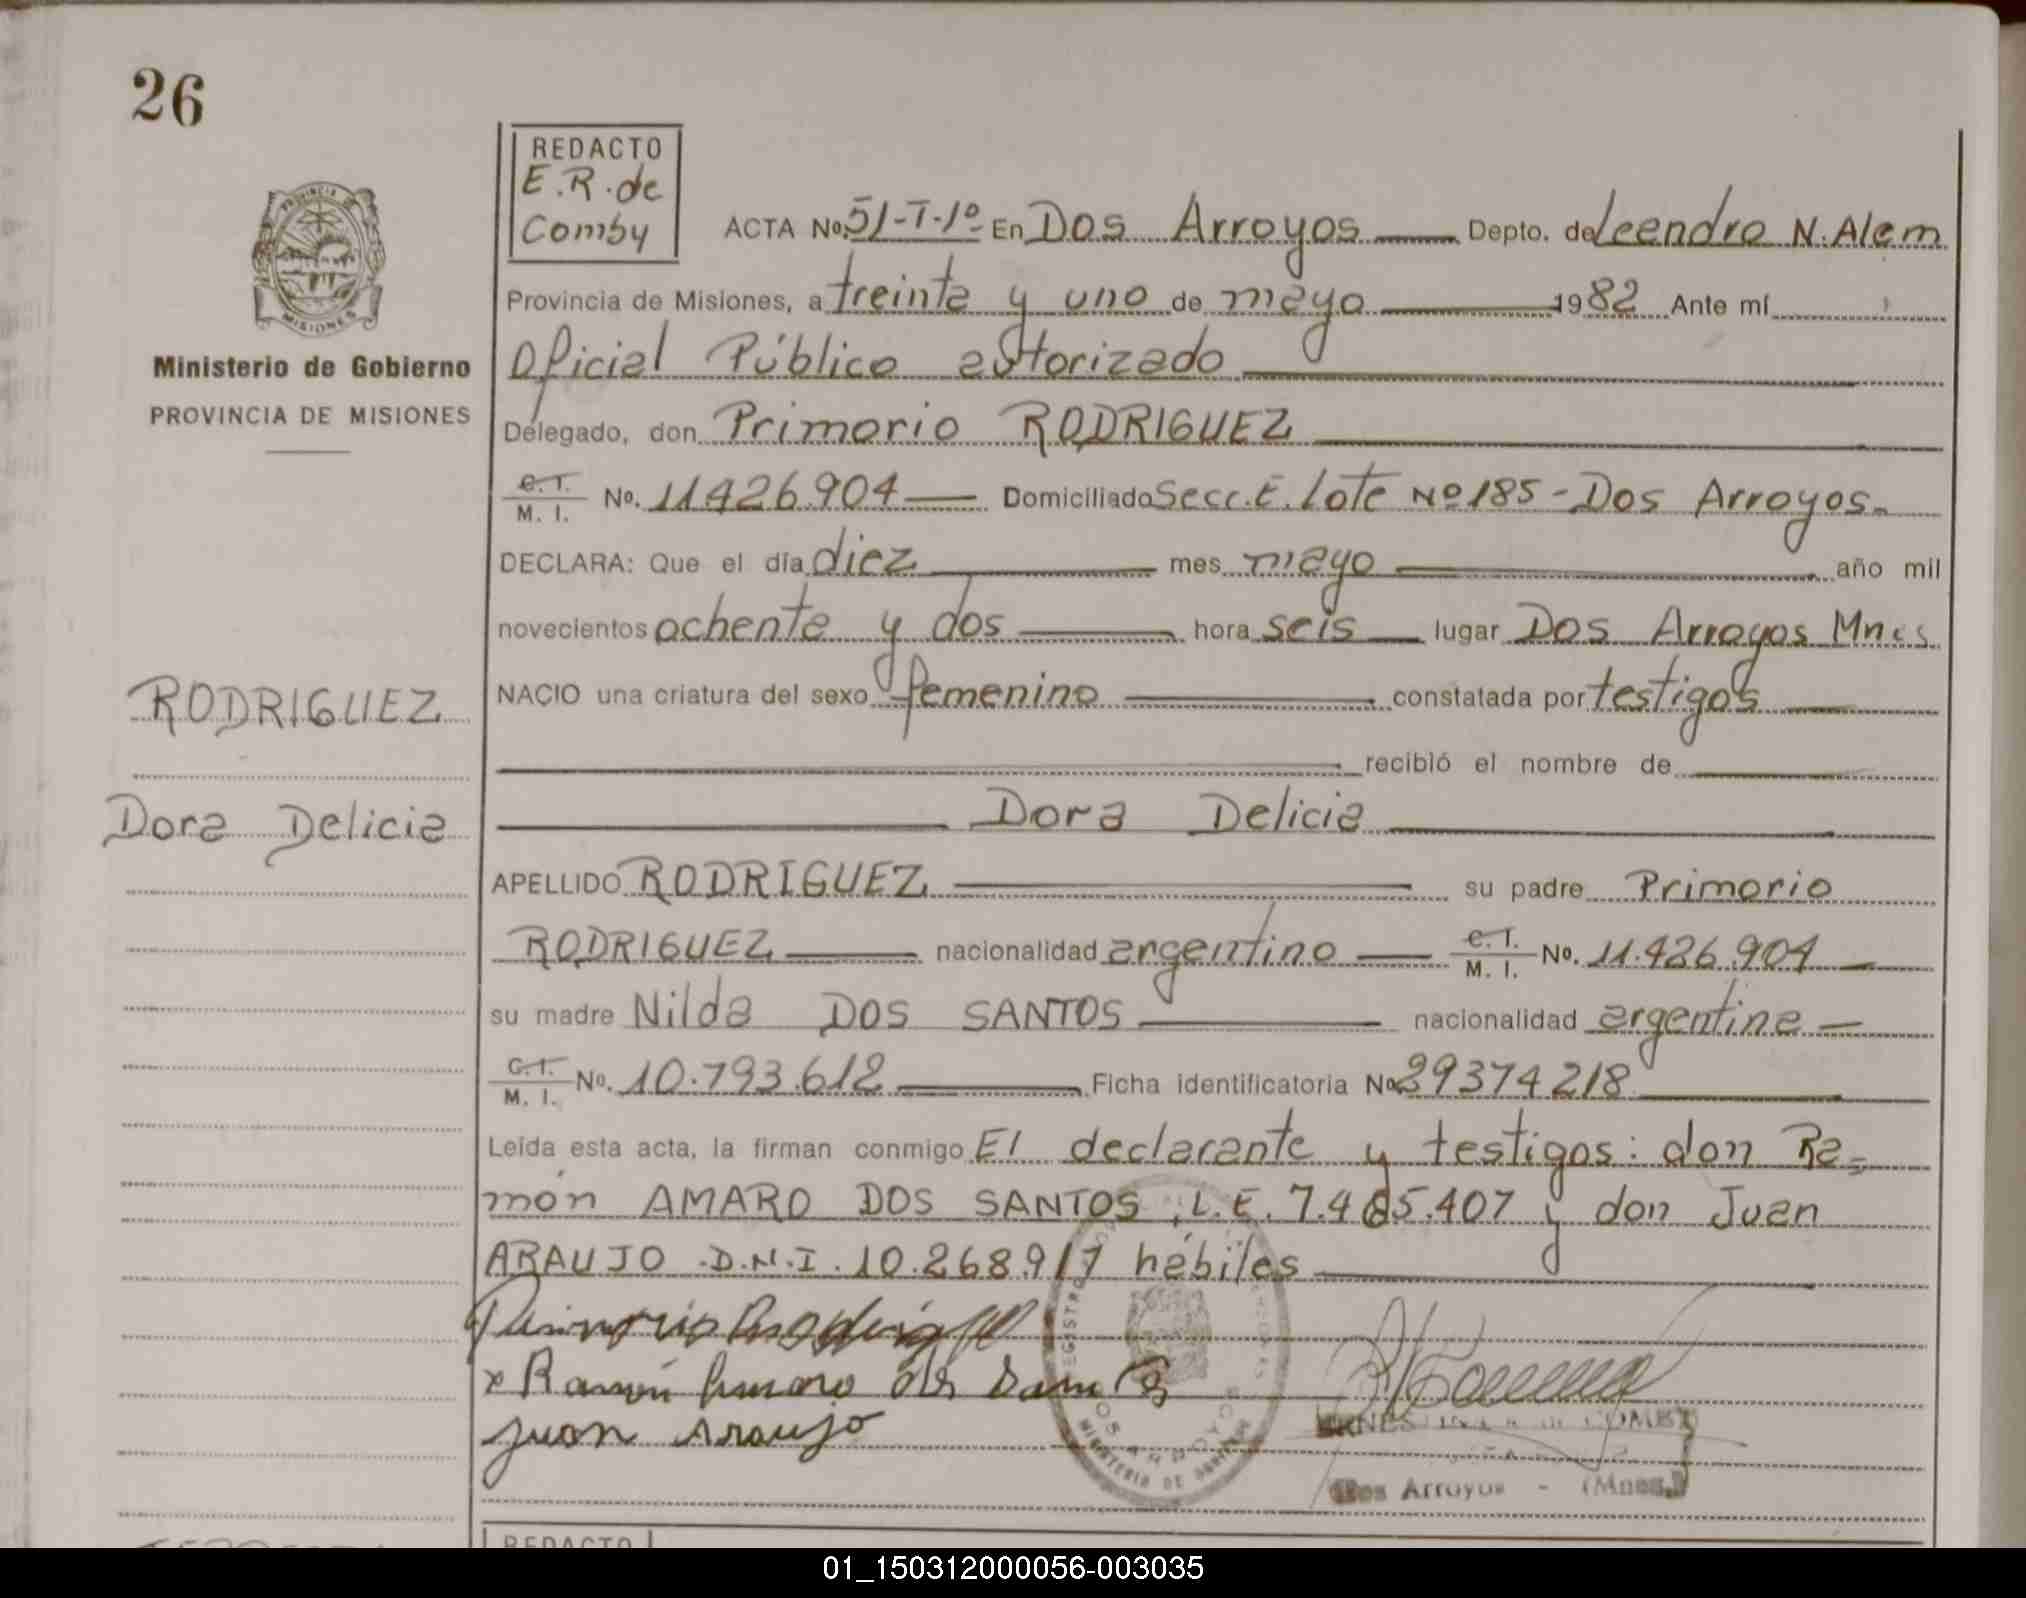 26
REDACTO
E.R. de
Comby
ACTA No. 51-T-1º En Dos Arroyos Depto. de Leandro N. Alem
Provincia de Misiones, a treinta y uno de mayo 1982 Ante mí
Oficial Público autorizado
Ministerio de Gobierno
PROVINCIA DE MISIONES
Delegado, don Primorio RODRIGUEZ
C.I. M. I. No. 11.426.904 Domiciliado Secc. E. Lote Nº 185 - Dos Arroyos.
DECLARA: Que el día diez mes mayo año mil
novecientos ochenta y dos hora seis lugar Dos Arroyos Mnes
RODRIGUEZ
NACIO una criatura del sexo femenino constatada por testigos
recibió el nombre de
Dora Delicia
Dora Delicia
APELLIDO RODRIGUEZ su padre Primorio
RODRIGUEZ nacionalidad argentino C.I. M. I. No. 11.426.904
su madre Nilda DOS SANTOS nacionalidad argentina
C.I. M. I. No. 10.793.612 Ficha identificatoria No. 29374218
Leída esta acta, la firman conmigo El declarante y testigos: don Ra=
món AMARO DOS SANTOS, L.E. 7.485.407 y don Juan
ARAUJO D.N.I. 10.268.917 hábiles
Primorio Rodriguez
x Ramón Amaro dos Santos
Juan Araujo
COMBY
Dos Arroyos - (Mnes.)
REGISTRO
DOS ARROYOS
MINISTERIO DE GOBIERNO
PROVINCIA DE
MISIONES
REDACTO
01_150312000056-003035